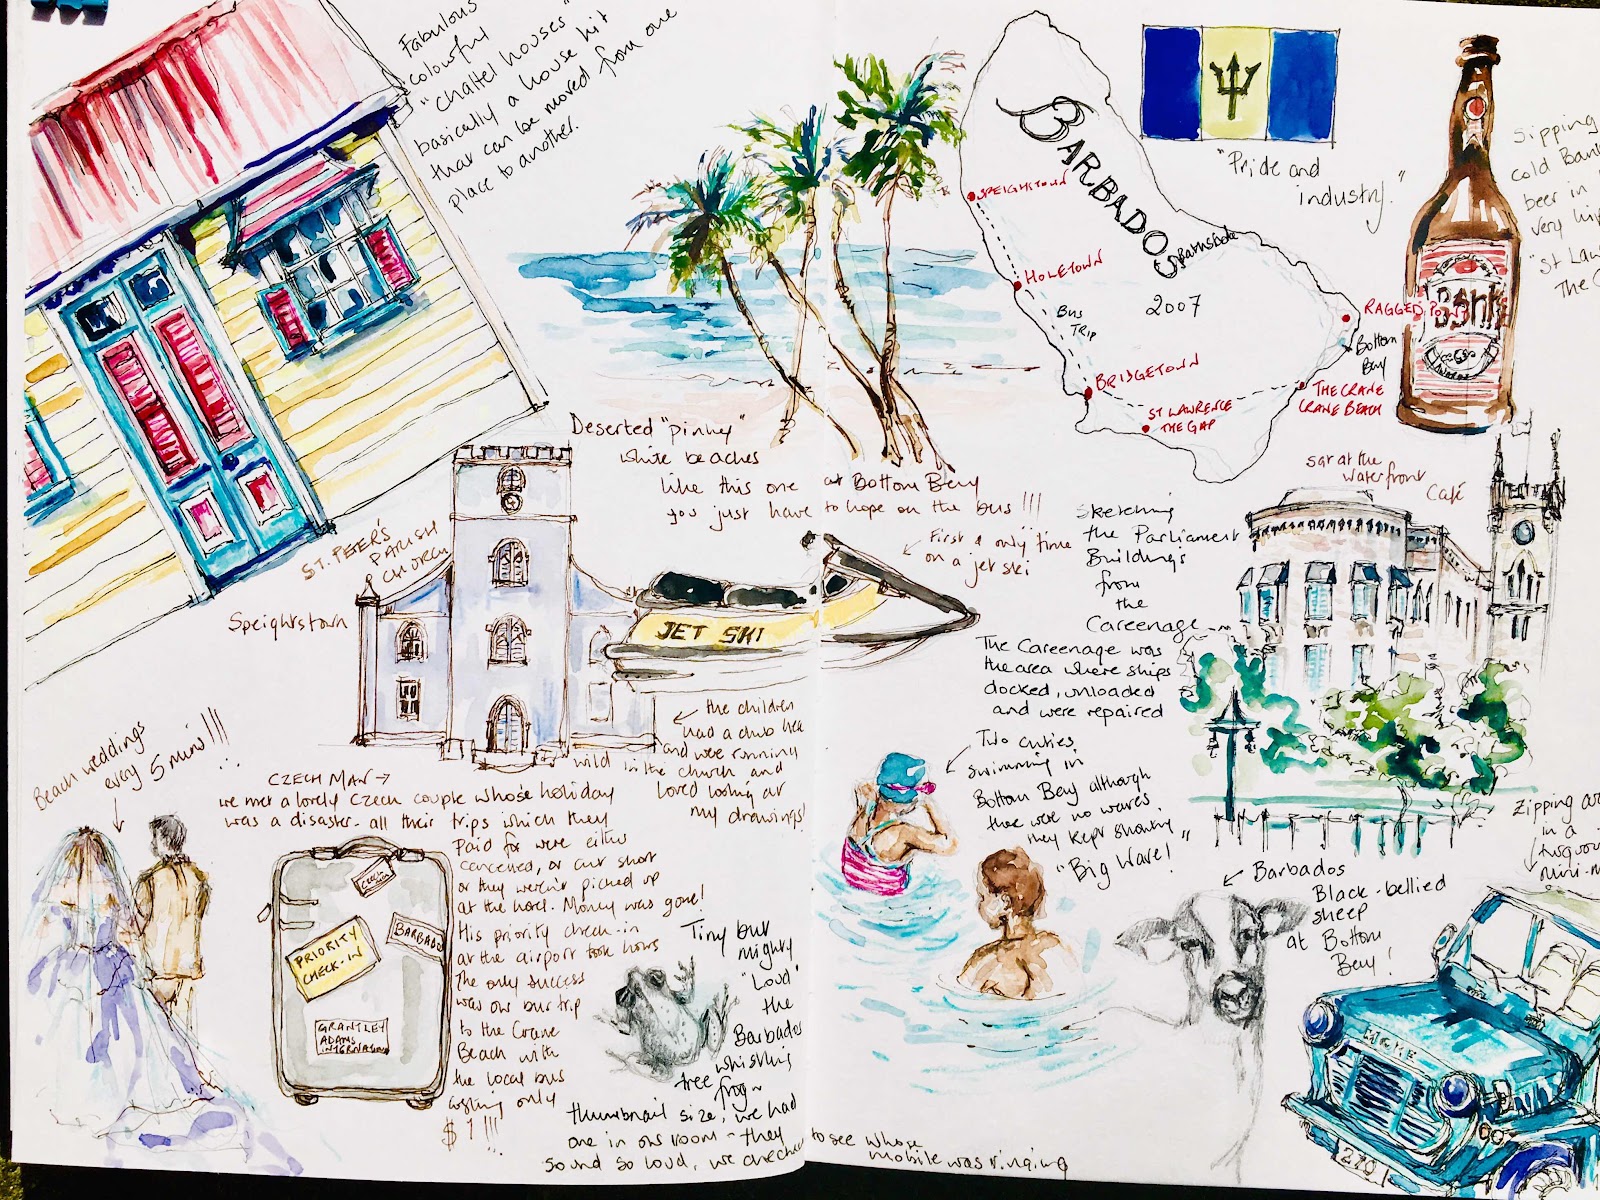 Fabulous
colourful
"chattel houses"
basically a house kit
that can be moved from one
place to another.
Deserted "pinky"
white beaches
like this one at Bottom Bay
you just have to hope on the bus !!!
ST. PETER'S
PARISH
CHURCH
Speightstown
JET SKI
First & only time
on a jet ski
the children
had a club here
and were running
wild in the church and
loved looking at
my drawings!
Beach weddings
every 5 mins !!!
CZECH MAN →
we met a lovely Czech couple whose holiday
was a disaster. all their trips which they
paid for were either
cancelled, or cut short
or they weren't picked up
at the hotel. Money was gone!
His priority check-in
at the airport took hours
The only success
was our bus trip
to the Crane
Beach with
the local bus
costing only
$1 !!!
PRIORITY
CHECK-IN
BARBADOS
GRANTLEY
ADAMS
INTERNATIONAL
Tiny but
mighty
"Loud"
the
Barbados
whistling
tree frog~
thumbnail size, we had
one in our room - they
sound so loud, we
to see whose
mobile was ringing
BARBADOS
2007
SPEIGHTSTOWN
HOLETOWN
BUS
TRIP
Bathsheba
BRIDGETOWN
ST LAWRENCE
THE GAP
RAGGED
Bottom
Bay
THE CRANE
CRANE BEACH
"Pride and
industry."
Banks
Sipping
cold
beer in
very
"St
The
sat at the
waterfront
Café
Sketching
the Parliament
Buildings
from
the
Careenage
The Careenage was
the area where ships
docked, unloaded
and were repaired
Two cuties
swimming in
Bottom Bay although
there were no waves
they kept shouting
"Big Wave!"
Barbados
Black-bellied
sheep
at Bottom
Bay!
Zipping
in a
MOKE